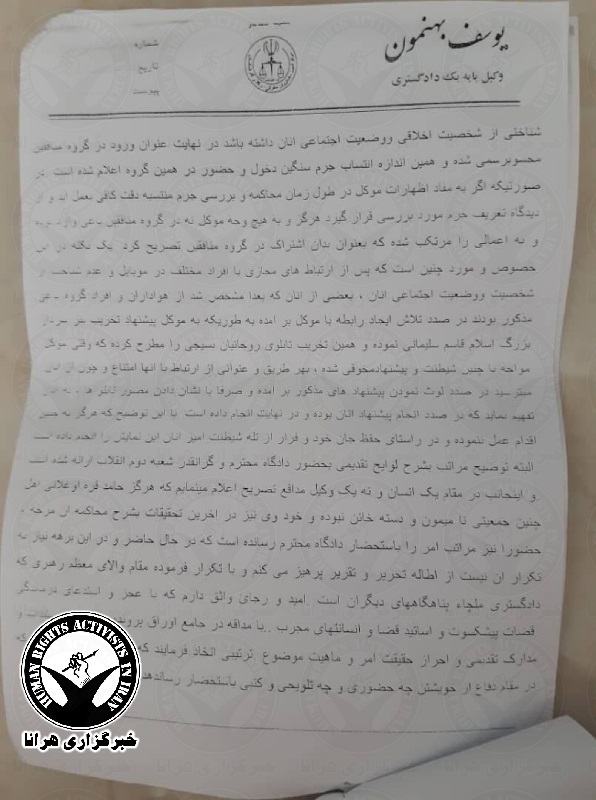 یوسف بهنمون
وکیل پایه یک دادگستری
شماره
تاریخ
پیوست
شناختی از شخصیت اخلاقی ووضعیت اجتماعی انان داشته باشد در نهایت عنوان ورود در گروه منافقین
محسوبرسمی شده و همین اندازه انتساب جرم سنگین دخول و حضور در همین گروه اعلام شده است در
صورتیکه اگر به مفاد اظهارات موکل در طول زمان محاکمه و بررسی جرم منتسبه دقت کافی بعمل اید و از
دیدگاه تعریف جرم مورد بررسی قرار گیرد هرگز و به هیچ وجه موکل نه در گروه منافقین
و به اعمالی را مرتکب شده که بعنوان بدان اشتراک در گروه منافقن تصریح کرد یک نکته در این
خصوص و مورد چنین است که پس از ارتباط های مجازی با افراد مختلف در موبایل و عدم شناخت
شخصیت ووضعیت اجتماعی انان ، بعضی از انان که بعدا مشخص شد از هواداران و افراد گروه
مذکور بودند در صدد تلاش ایجاد رابطه با موکل بر امده به طوریکه به موکل پیشنهاد تخریب
بزرگ اسلام قاسم سلیمانی نموده و همین تخریب تابلوی روحانیان بسیجی را مطرح کرده که وقتی موکل
مواجه با چنین شیطنت و پیشنهادمخوفی شده ، بهر طریق و عنوانی از ارتباط با انها امتناع و چون از انان
میترسید در صدد لوث نمودن پیشنهاد های مذکور بر امده و صرفا با نشان دادن تصویر تابلو ها به انان
تفهیم نماید که در صدد انجام پیشنهاد انان بوده و در نهایت انجام داده است با این توضیح که هرگز به چنین
اقدام عمل ننموده و در راستای حفظ جان خود و فرار از تله شیطنت امیز انان این نمایش را انجام داده است
البته توضیح مراتب بشرح لوایح تقدیمی بحضور دادگاه محترم و گرانقدر شعبه دوم انقلاب ارائه شده است
و اینجانب در مقام یک انسان و نه یک وکیل مدافع تصریح اعلام مینمایم که هرگز حامد قره اوغلانی اهل
چنین جمعیتی نا میمون و دسته خائن نبوده و خود وی نیز در اخرین تحقیقات بشرح محاکمه ان مرحله ،
حضورا نیز مراتب امر را باستحضار دادگاه محترم رسانده است که در حال حاضر و در این برهه نیاز به
تکرار ان نیست از اطاله تحریر و تقریر پرهیز می کنم و با تکرار فرموده مقام والای معظم رهبری که
دادگستری ملجاء پناهگاههای دیگران است امید و رجای واثق دارم که با عجز و استدعای
قضات پیشکسوت و اساتید قضا و انسانتهای مجرب .. با مداقه در جامع اوراق پرونده
مدارک تقدیمی و احراز حقیقت امر و ماهیت موضوع ترتیبی اتخاذ فرمایند که
در مقام دفاع از خویشتن چه حضوری و چه تلویحی و کتبی باستحضار رساندهد
HUMAN RIGHTS ACTIVISTS IN IRAN
خبرگزاری هرانا